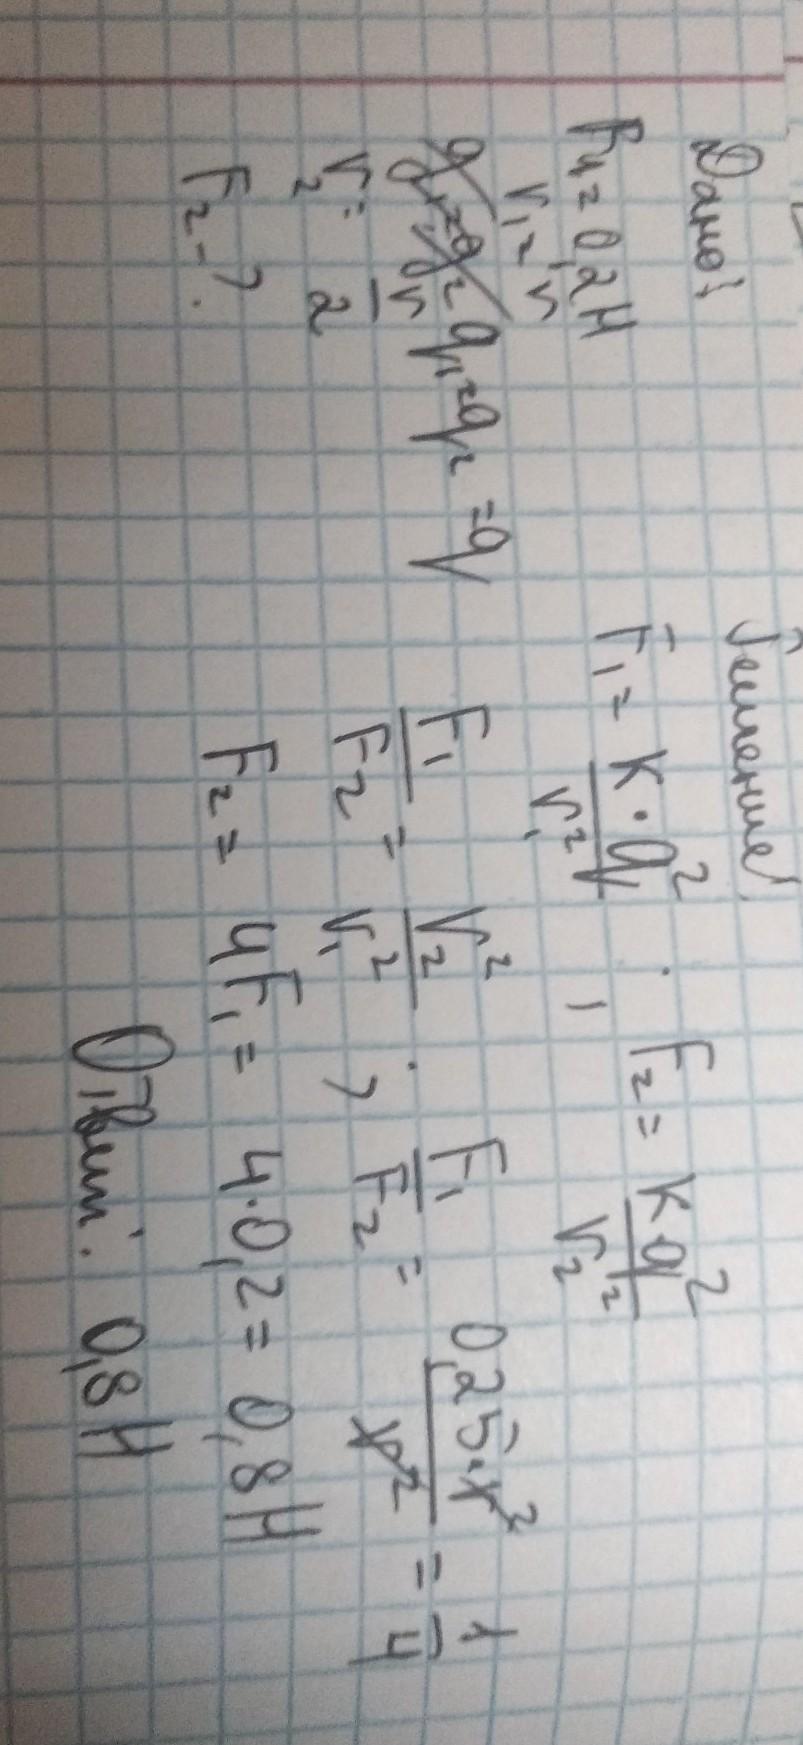 Дано:
F₁ = 0,2 Н
r₁ = r
q₁ = q₂ = q
r₂ = r/2
F₂ - ?
Решение:
F₁ = k·q²/r₁² ; F₂ = kq²/r₂²
F₁/F₂ = r₂²/r₁² ; F₁/F₂ = 0,25·r²/r² = 1/4
F₂ = 4F₁ = 4·0,2 = 0,8 Н
Ответ: 0,8 Н